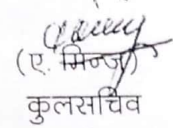 (ए. मिन्ज)
कुलसचिव